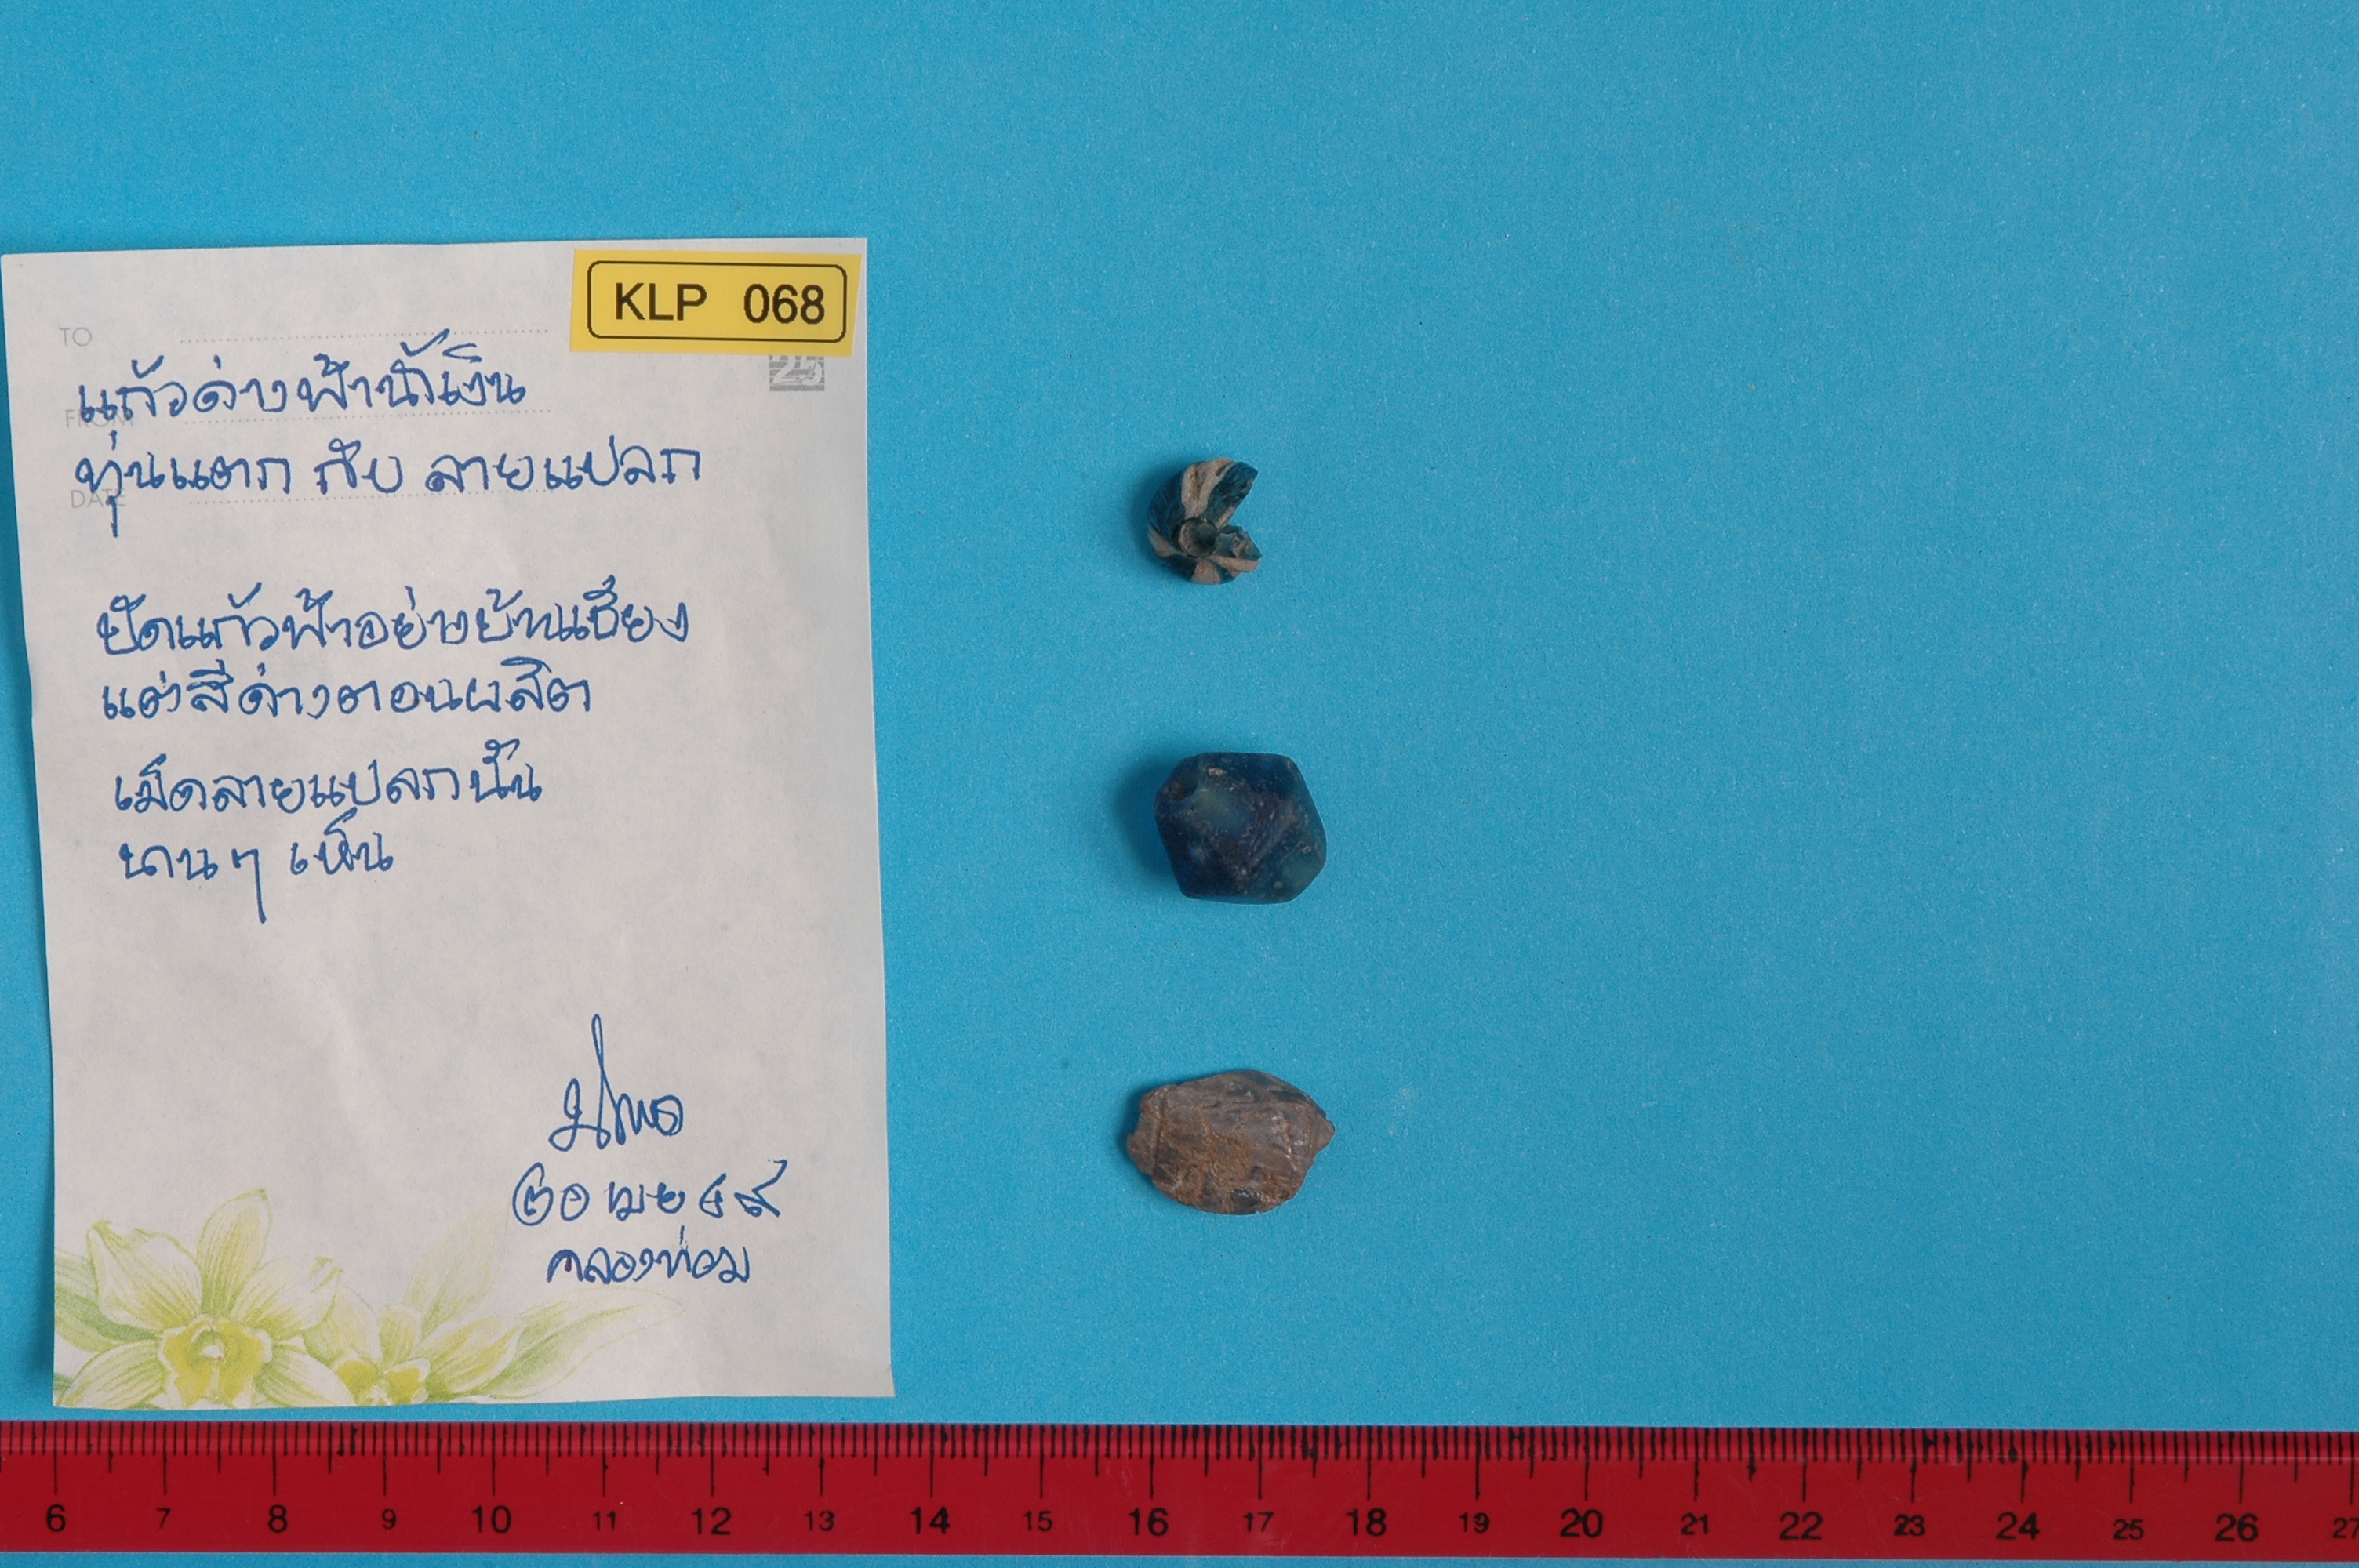 KLP 068
TO
25
แก้วด่างฟ้าน้ำเงิน
FROM
ทุ่นแตก กับ ลายแปลก
DATE
ปัดแก้วฟ้าอย่างบ้านเชียง
แต่งสีด่างตอนผลิต
เม็ดลายแปลกนั้น
นานๆ เห็น
๒๐ เมย ๔๙
คลองท่อม
6 7 8 9 10 11 12 13 14 15 16 17 18 19 20 21 22 23 24 25 26 27